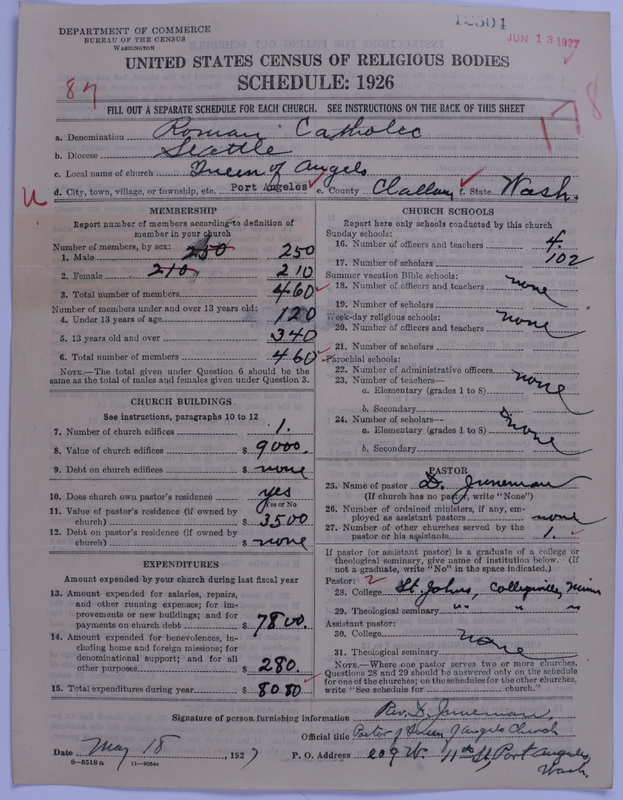 DEPARTMENT OF COMMERCE
BUREAU OF THE CENSUS
WASHINGTON
12504
JUN 13 1927
UNITED STATES CENSUS OF RELIGIOUS BODIES
SCHEDULE: 1926
87
178
FILL OUT A SEPARATE SCHEDULE FOR EACH CHURCH. SEE INSTRUCTIONS ON THE BACK OF THIS SHEET
a. Denomination Roman Catholic
b. Diocese Seattle
c. Local name of church Queen of Angels
d. City, town, village, or township, etc. Port Angeles e. County Clallam f. State Wash.
MEMBERSHIP
Report number of members according to definition of
member in your church
Number of members, by sex:
1. Male 250 250
2. Female 210 210
3. Total number of members 460
Number of members under and over 13 years old:
4. Under 13 years of age 120
5. 13 years old and over 340
6. Total number of members 460
NOTE.—The total given under Question 6 should be
same as the total of males and females given under Question 3.
CHURCH BUILDINGS
See instructions, paragraphs 10 to 12
7. Number of church edifices 1.
8. Value of church edifices $ 9000.
9. Debt on church edifices $ none
10. Does church own pastor's residence yes
Yes or No
11. Value of pastor's residence (if owned by
church) $ 3500
12. Debt on pastor's residence (if owned by
church) $ none
EXPENDITURES
Amount expended by your church during last fiscal year
13. Amount expended for salaries, repairs,
and other running expenses; for im-
provements or new buildings; and for
payments on church debt $ 7800.
14. Amount expended for benevolences, in-
cluding home and foreign missions; for
denominational support; and for all
other purposes $ 280.
15. Total expenditures during year $ 8080
CHURCH SCHOOLS
Report here only schools conducted by this church
Sunday schools:
16. Number of officers and teachers 4.
17. Number of scholars 102
Summer vacation Bible schools:
18. Number of officers and teachers none
19. Number of scholars
Week-day religious schools:
20. Number of officers and teachers none
21. Number of scholars
Parochial schools:
22. Number of administrative officers
23. Number of teachers— none
a. Elementary (grades 1 to 8)
b. Secondary
24. Number of scholars—
a. Elementary (grades 1 to 8) none
b. Secondary
PASTOR
25. Name of pastor D. Juneman
(If church has no pastor, write "None")
26. Number of ordained ministers, if any, em-
ployed as assistant pastors none
27. Number of other churches served by the
pastor or his assistants 1.
If pastor (or assistant pastor) is a graduate of a college or
theological seminary, give name of institution below. (If
not a graduate, write "No" in the space indicated.)
Pastor: 2
28. College St. Johns, Collegeville, Minn
29. Theological seminary " " "
Assistant pastor:
30. College none
31. Theological seminary
NOTE.—Where one pastor serves two or more churches,
Questions 28 and 29 should be answered only on the schedule
for one of the churches; on the schedules for the other churches,
write "See schedule for church."
Signature of person furnishing information Rev. D. Juneman
Official title Pastor of Queen of Angels Church
Date May 18, 1927 P. O. Address 209 W. 11th St, Port Angeles
Wash.
8—5518 a